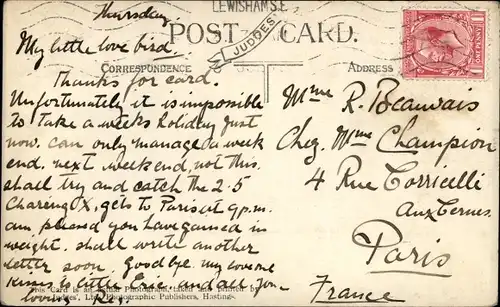 LEWISHAM S.E.
Thursday
POST CARD.
JUDGES'
CORRESPONDENCE
ADDRESS
My little love bird.
Thanks for card.
Unfortunately it is impossible
to take a weeks holiday just
now. can only manage a week
end. next week end, not this.
shall try and catch the 2.5
Charing X, gets to Paris at 9 p.m.
am pleased you have gained in
weight. shall write another
letter soon. Goodbye my love one
to little Eric, and all your
loving
This Card is an Actual Photograph, taken and printed by
Judges', Ltd., Photographic Publishers, Hastings.
Mme R. Beauvais
Chez. Mme Champion
4 Rue Torricelli
aux Ternes.
Paris
France